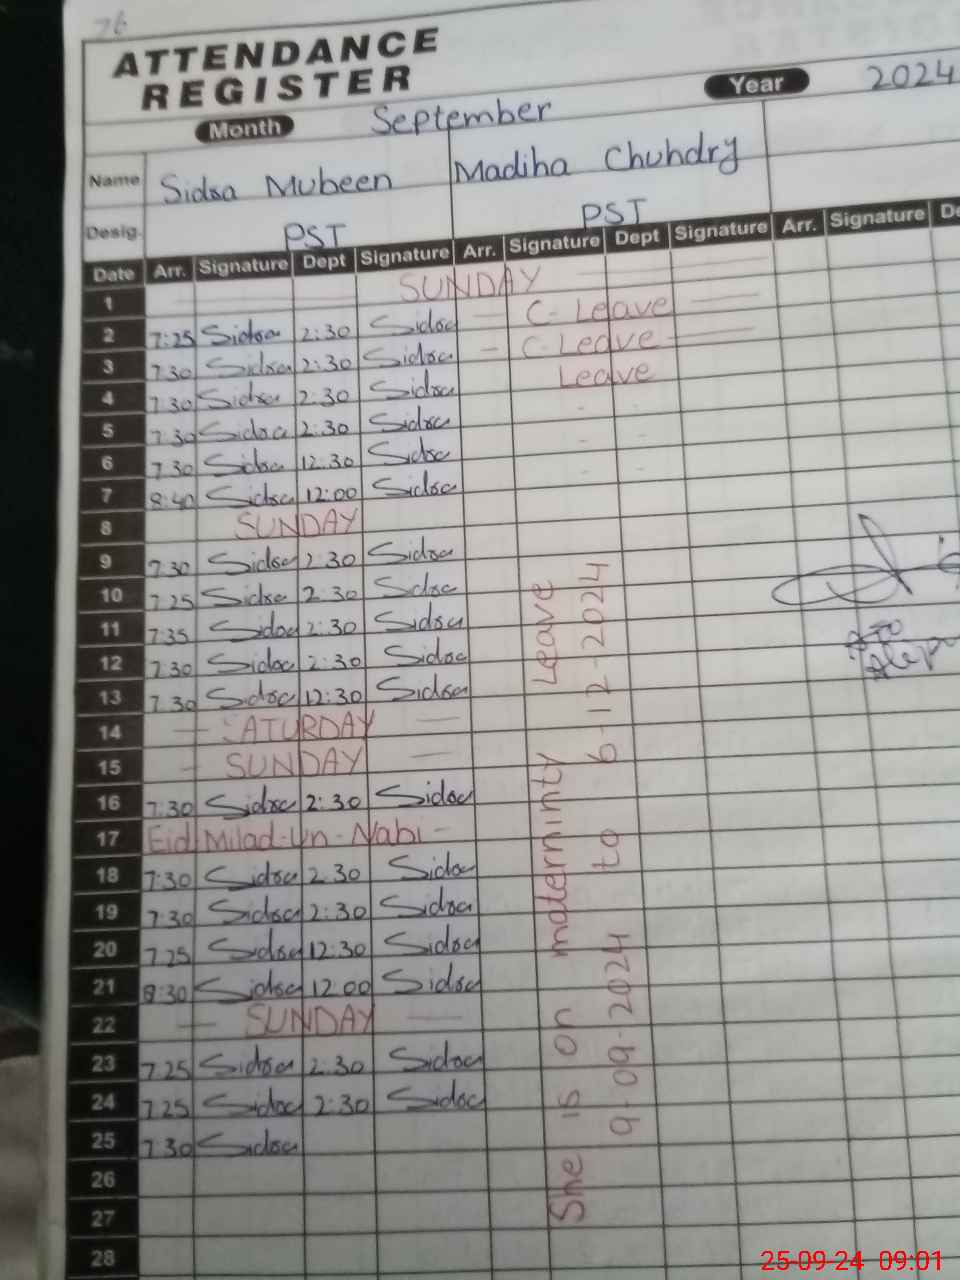 76
ATTENDANCE
REGISTER
Year 2024
Month September
Name Sidsa Mubeen Madiha Chuhdry
Desig. PST PST
Date Arr. Signature Dept Signature Arr. Signature Dept Signature Arr. Signature De
1 SUNDAY
2 7:25 Sidsa 2:30 Sidsa C- Leave
3 7:30 Sidsa 2:30 Sidsa C-Leave
4 7:30 Sidsa 2:30 Sidsa Leave
5 7:30 Sidsa 2:30 Sidsa
6 7:30 Sidsa 12:30 Sidsa
7 8:40 Sidsa 12:00 Sidsa
8 SUNDAY
9 7:30 Sidsa 2:30 Sidsa
10 7:25 Sidsa 2:30 Sidsa
11 7:35 Sidsa 2:30 Sidsa
12 7:30 Sidsa 2:30 Sidsa
13 7:30 Sidsa 12:30 Sidsa
14 SATURDAY
15 SUNDAY
16 7:30 Sidsa 2:30 Sidsa
17 Eid Milad-Un-Nabi-
18 7:30 Sidsa 2:30 Sidsa
19 7:30 Sidsa 2:30 Sidsa
20 7:25 Sidsa 12:30 Sidsa
21 8:30 Sidsa 12:00 Sidsa
22 SUNDAY
23 7:25 Sidsa 2:30 Sidsa
24 7:25 Sidsa 2:30 Sidsa
25 7:30 Sidsa
26
27
28
She is on materminty Leave
9-09-2024 to 6-12-2024
25-09-24 09:01